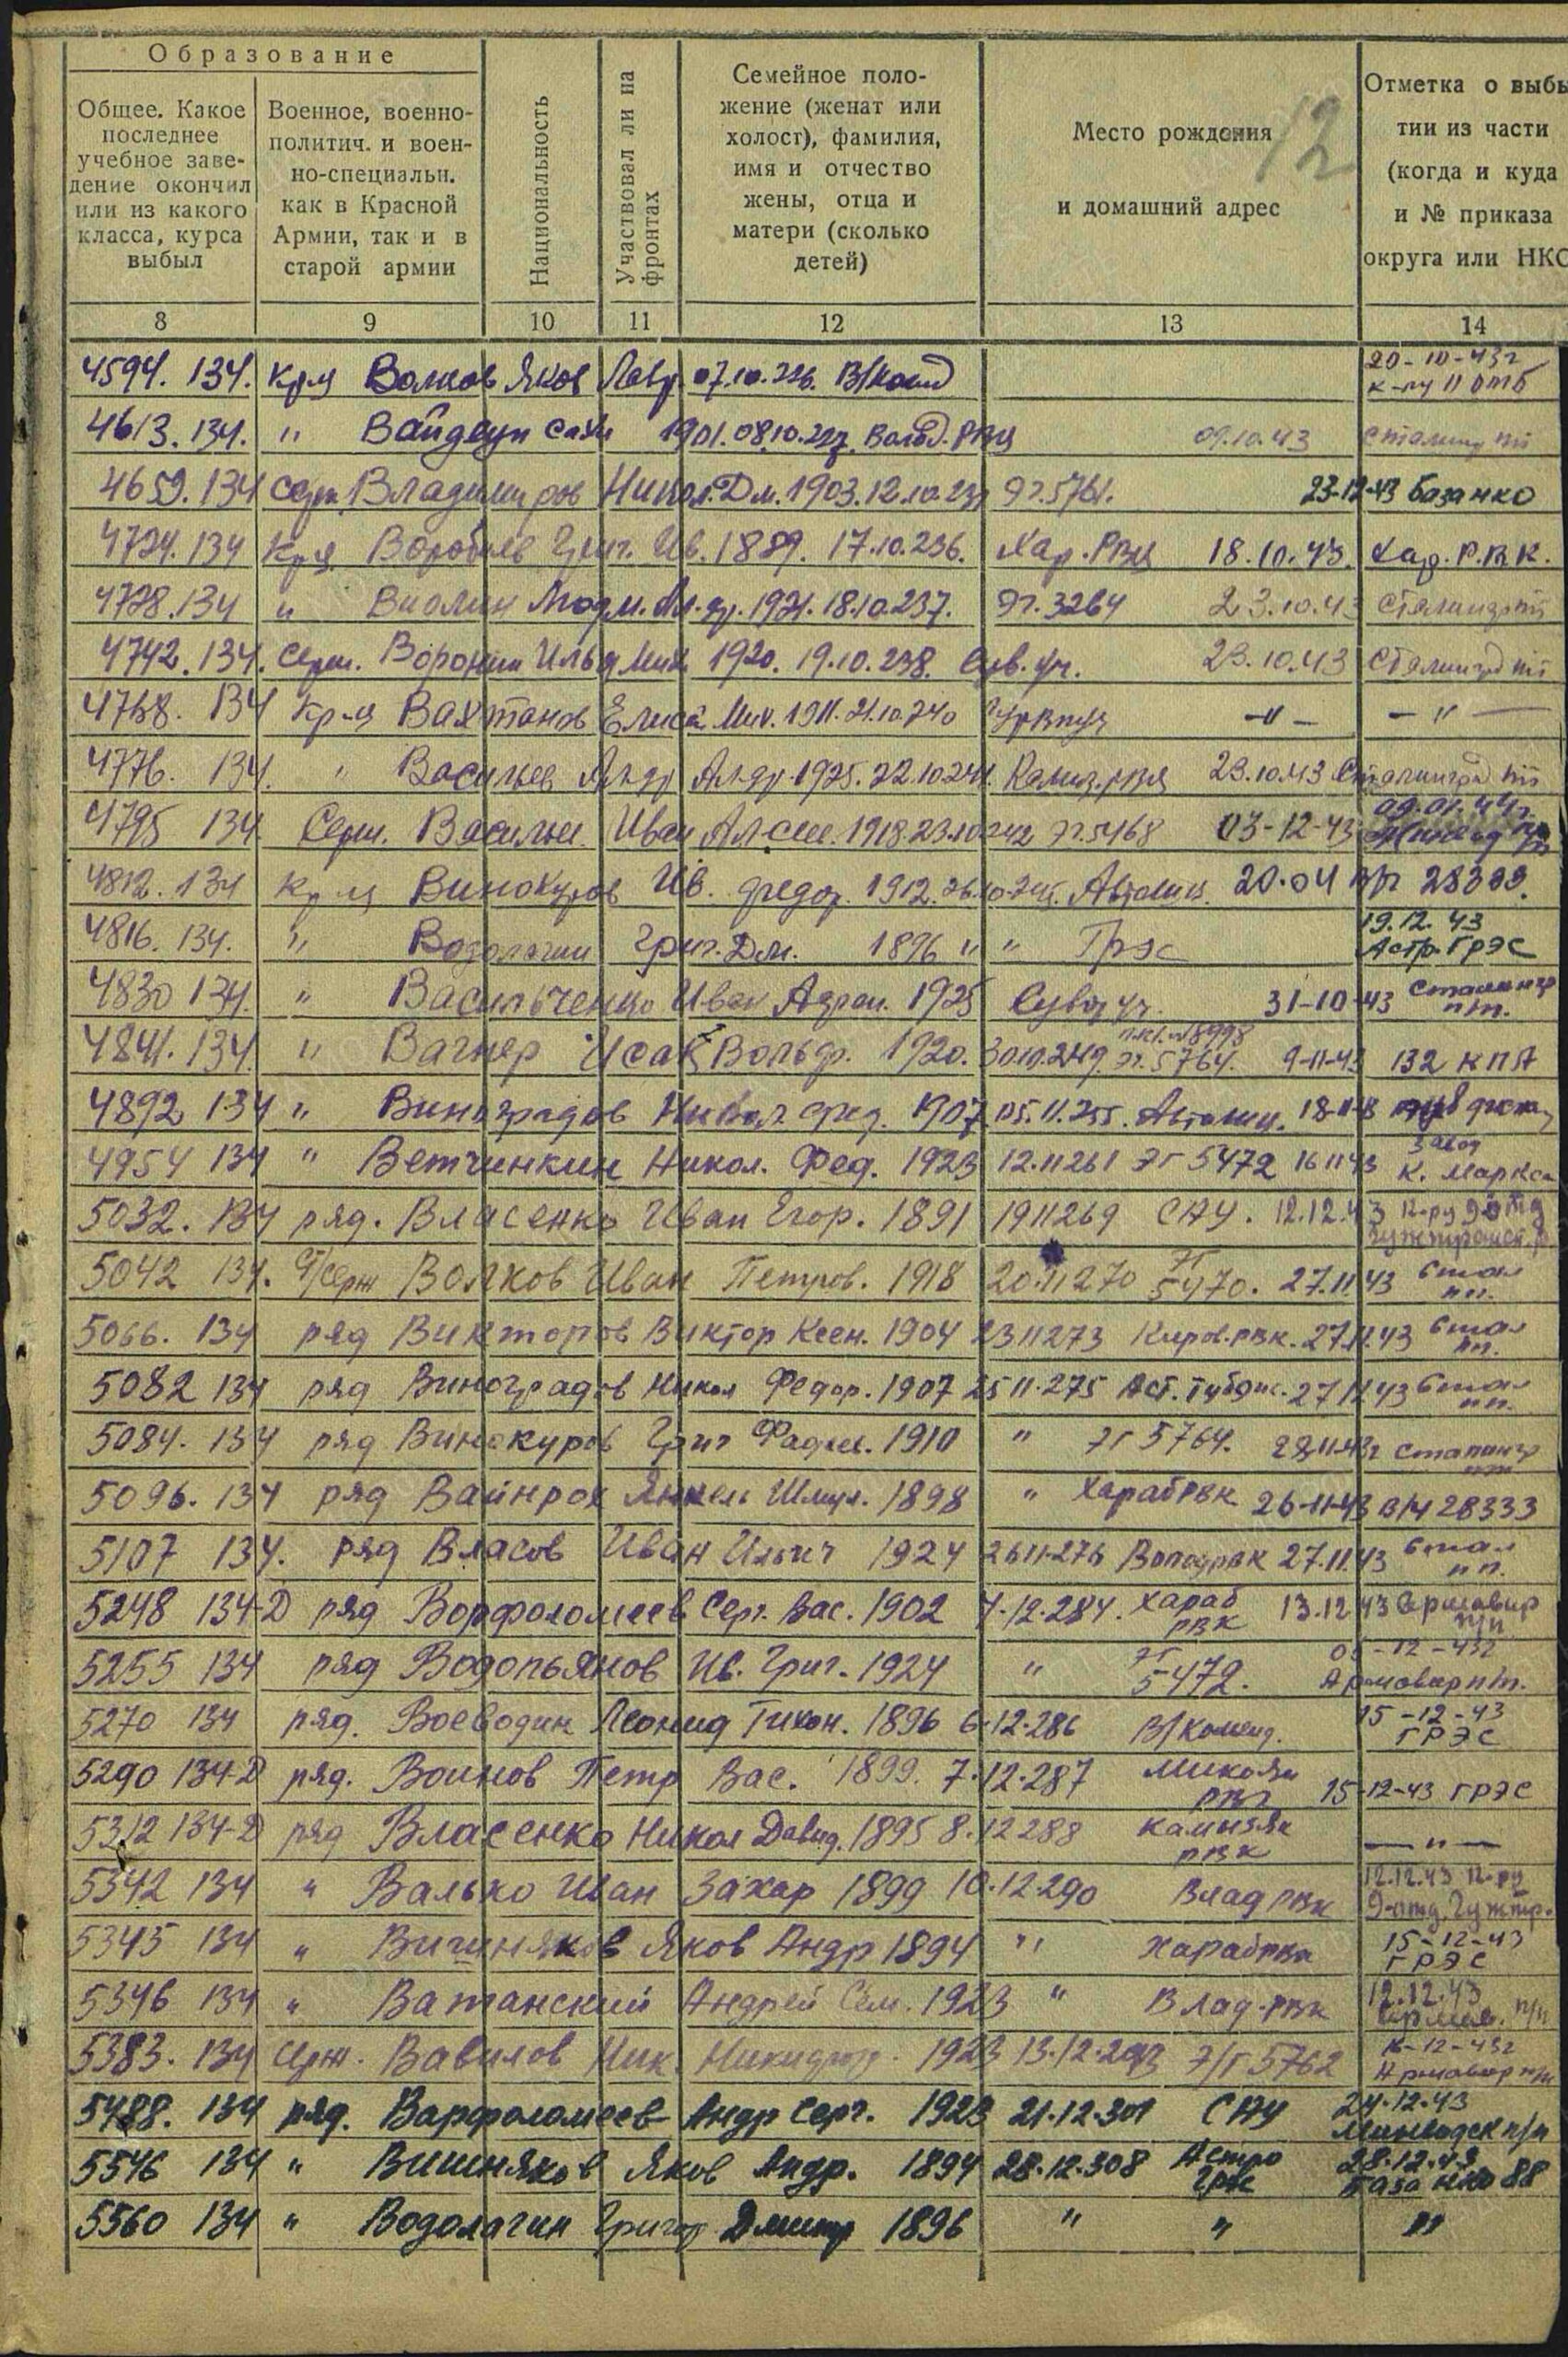 Образование
Общее. Какое последнее учебное заведение окончил или из какого класса, курса выбыл
Военное, военно-политич. и военно-специальн. как в Красной Армии, так и в старой армии
Национальность
Участвовал ли на фронтах
Семейное положение (женат или холост), фамилия, имя и отчество жены, отца и матери (сколько детей)
Место рождения и домашний адрес
12
Отметка о выбы
тии из части
(когда и куда
и № приказа
округа или НКО
8 9 10 11 12 13 14
4594. 134. кр-ц Волков Яков Лавр. 07.10.226. В/Коменд 20-10-43г к-ру 11 отб
4613. 134. " 1901. 08.10.227. Волод. РВК 09.10.43 Сталингр пп
4659. 134 Серж. Владимиров Никол. Дм. 1903. 12.10.231 эг. 5761. 23-12-43 база нко
4724. 134 кр-ц Воробьев Григ. Ив. 1889. 17.10.236. Хар. РВК 18.10.43. Хар. Р.В.К.
4728. 134 " 18.10.237. Эг. 3264 23.10.43 Сталингр пп
4742. 134. Серж. Воронин Илья Мих 1920. 19.10.238. Сув. уч. 23.10.43 Сталингр пп
4768. 134 кр-ц Вахтанов Елисей Мих. 1911. 21.10.240 — " — — " —
4776. 134. " Васильев Алдр Алдр 1925. 22.10.241. 23.10.43 Сталинград пп
4795 134 Серж. Васильев Иван Алексе. 1918 23.10.242 эг. 5468 03-12-43 09.01.44г.
4812. 134 кр-ц Винокуров Ив. Федор. 1912. 20.04 в/ч 28333.
4816. 134. " Водолагин Григ. Дм. 1896 " " Грэс 19.12.43 Астр. ГРЭС
4830 134. " Васильченко Иван Адрон. 1925 Сувор уч. 31-10-43 Сталингр п/п.
4841. 134. " Вагнер Исак Вольф. 1920. 30.10.249. эг. 5764. 9-11-43 132 КПА
4892 134 " Виноградов Никол. Фед. 1907 05.11.255. 18-11-43
4954 134 " Ветчинкин Никол. Фед. 1923 12.11 261 ЭГ 5472 16 11 43 Завод К. Маркса
5032. 134 ряд. Власенко Иван Егор. 1891 19 11 269 САУ. 12.12.43 к-ру 9 отд
5042 134. Ст/серж Волков Иван Петров. 1918 20.11 270 ЭГ 5970. 27.11.43 Стал пп.
5066. 134 ряд Викторов Виктор Ксен. 1904 23 11 273 Киров. рвк. 27.11.43 Стал пп.
5082 134 ряд Виноградов Никол Федор. 1907 25 11. 275 27 11 43 Стал пп.
5084. 134 ряд Винокуров Григ Фадее. 1910 " ЭГ 5764. 28.11.43г Сталингр пп
5096. 134 ряд Вайнрох Янкель Шмул. 1898 " Хараб РВК 26-11-43 в/ч 28333
5107 134. ряд Власов Иван Ильич 1924 26 11. 276 Волод рвк 27.11.43 Стал пп.
5248 134-Д ряд Ворфоломеев Серг. Вас. 1902 4.12.284. Хараб рвк 13.12 43 Армавир п/п
5255 134 ряд Водопьянов Ив. Григ. 1924 " ЭГ 5472. 05-12-43г Армавир п/п.
5270 134 ряд. Воеводин Леонид Тихон. 1896 6.12.286 В/Коменд. 15-12-43 ГРЭС
5290 134-Д ряд. Воинов Петр Вас. 1899. 7.12.287 Микоян рвк 15-12-43 ГРЭС
5312 134-Д ряд Власенко Никол Давид. 1895 8.12 288 Камызяк рвк — " —
5342 134 " Валько Иван Захар 1899 10.12.290 Влад рвк 12.12.43 к-ру 9-отд. Гужтр.
5345 134 " Вишняков Яков Андр 1894 " Хараб рвк 15-12-43 ГРЭС
5346 134 " Ватанский Андрей Сем. 1923 " Влад. рвк 12.12.43 Армав. п/п
5383. 134 серж. Вавилов Ник. Никифор. 1923 13.12.293 Э/Г 5762 16-12-43г Армавир п/п
5488. 134 ряд. Варфоломеев Андр Серг. 1923 21.12.301 САУ 24.12.43 Минводск п/п
5546 134 " Вишняков Яков Андр. 1894 28.12.308 Астро Грэс 28.12.43 База НКО 88
5560 134 " Водолагин Григор Дмитр 1896 " " "